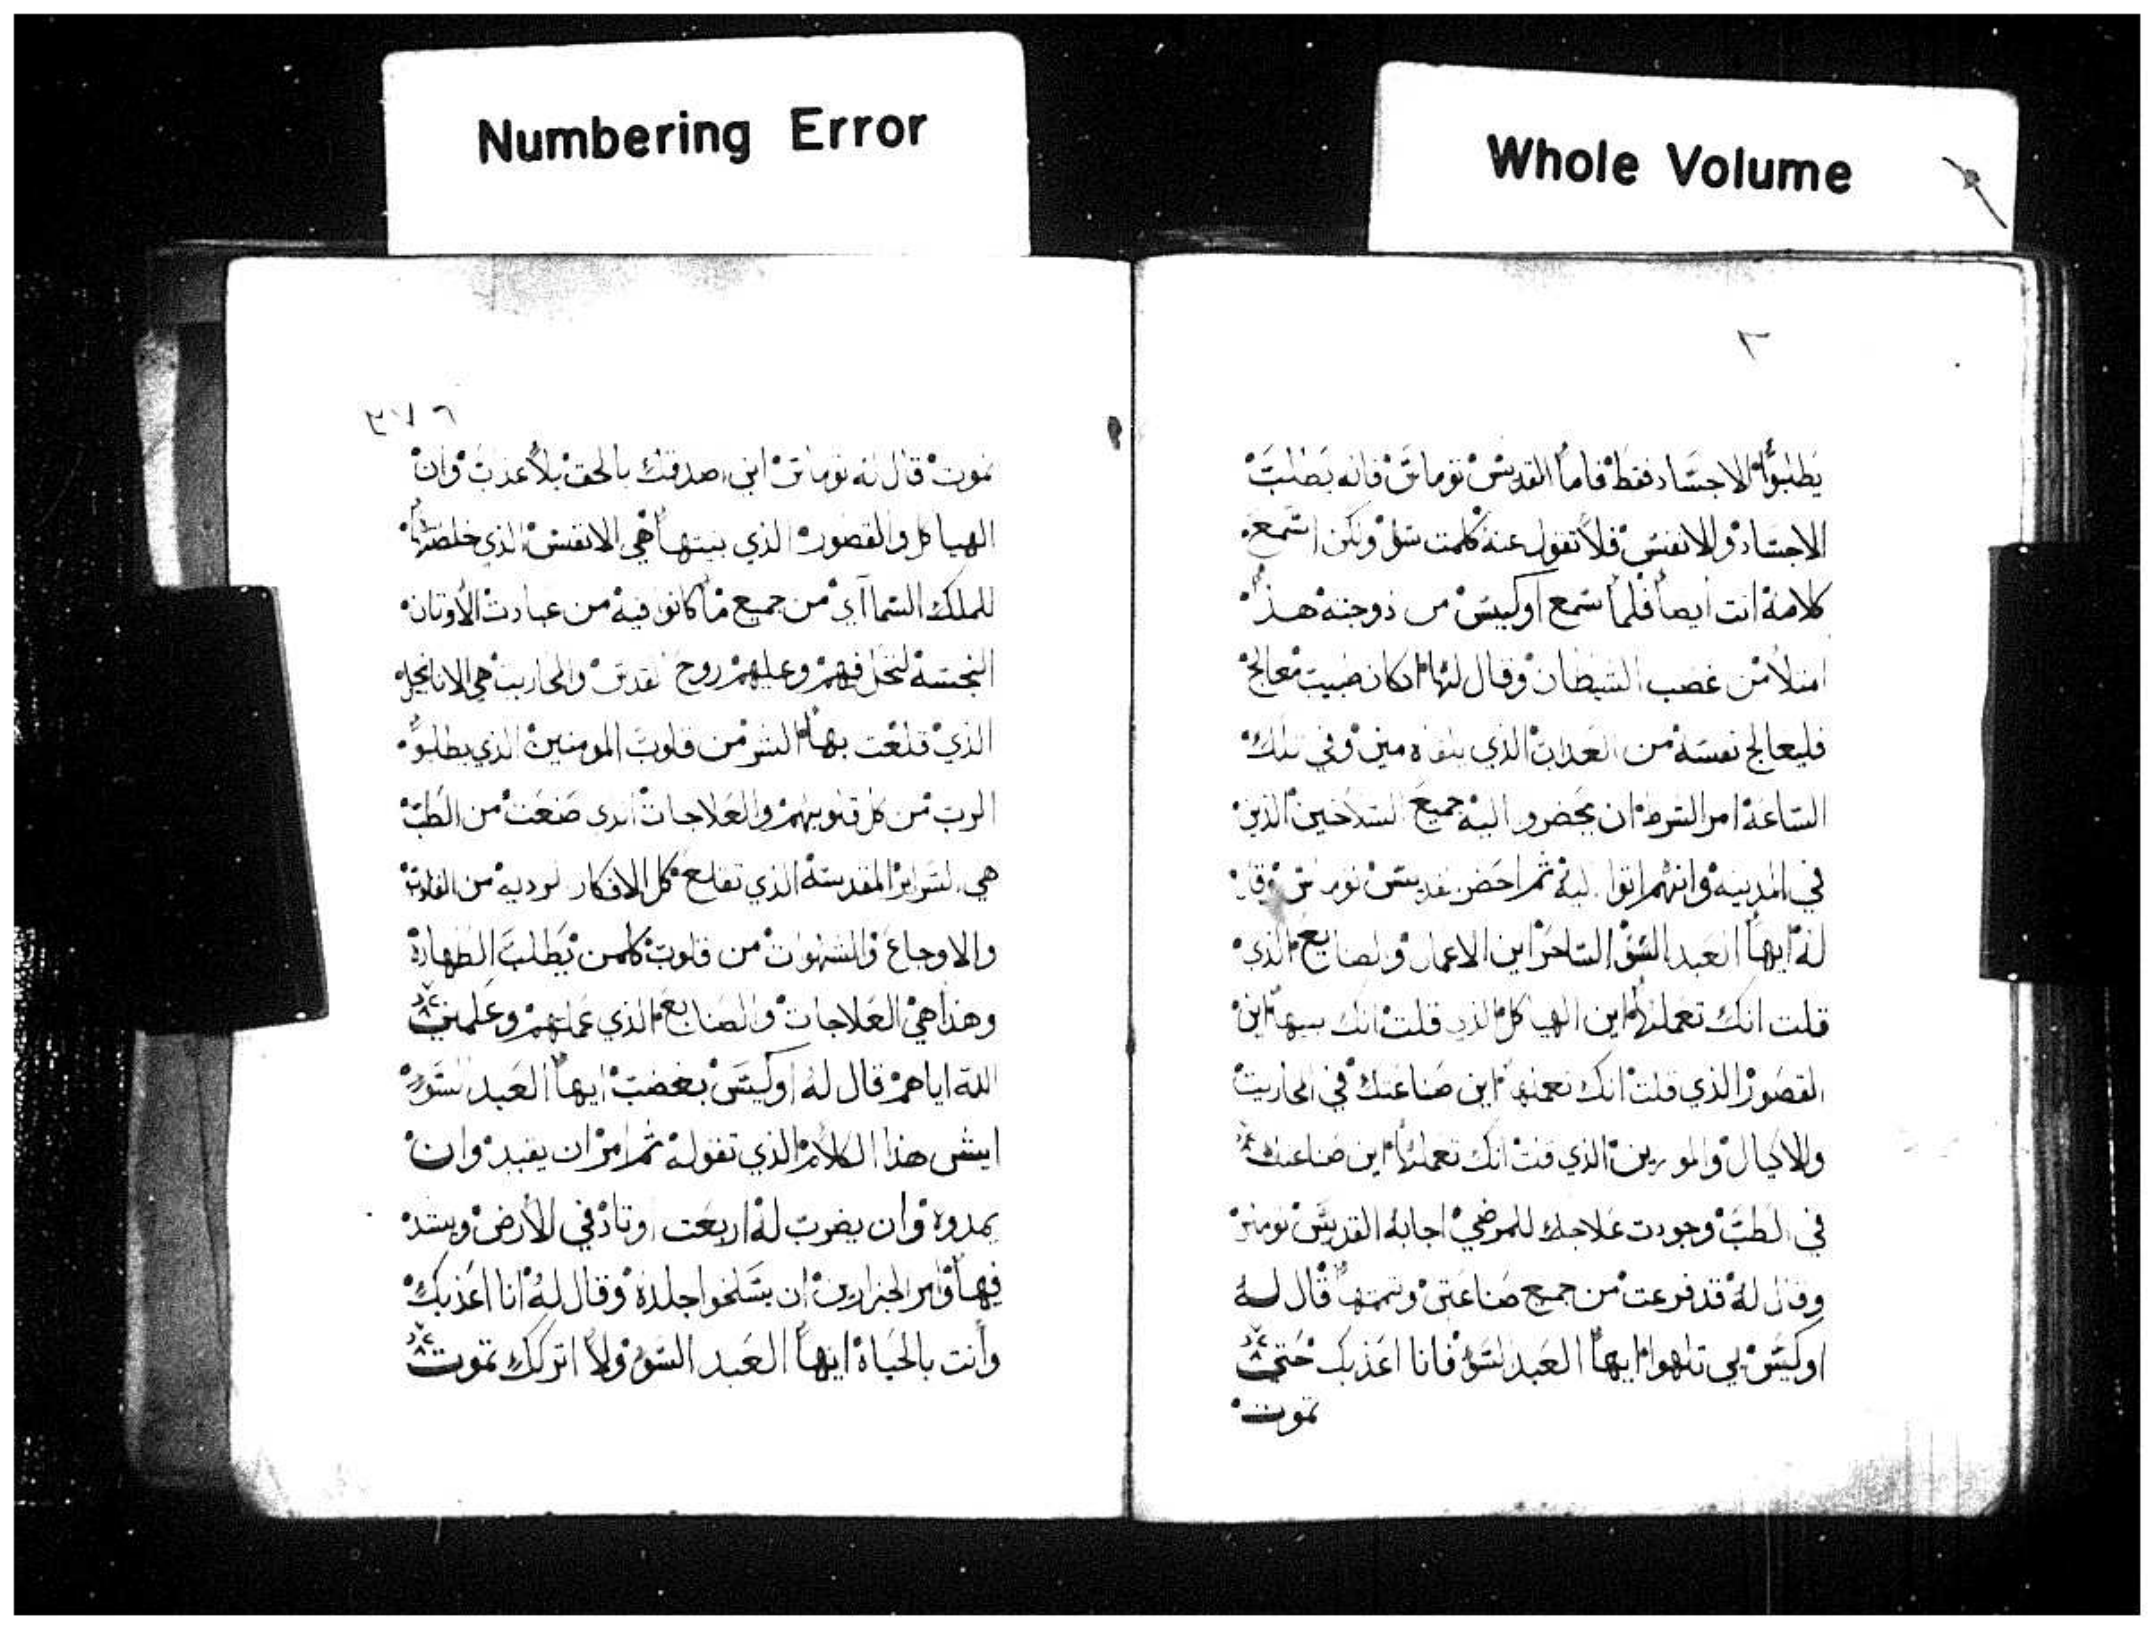 Numbering Error
Whole Volume
يطلبوا الاجساد فقط فاما القديس توماس فانه يطلب
الاجساد والانفس فلا تقول عنه كلمت سو ولكن اسمع
كلامه انت ايضا فلما سمع اوكيس من زوجته هذا
امتلا من غضب الشيطان وقال لها ان كان طبيب معالج
فليعالج نفسه من العداب الذي يلقاه مني وفي تلك
الساعة امر الشرط ان يحضرو اليه جميع السلاخين الذين
في المدينه وانهم اتوا اليه ثم احضر القديس توماس وقال
له ايها العبد السو الساحر اين الاعمال والصنايع الذي
قلت انك تعملها اين الهياكل الذي قلت انك بنيتها اين
القصور الذي قلت انك تعملها اين صناعتك في المحاريت
والاكيال والموازين الذي قلت انك تعملها اين صناعتك
في الطب وجودت علاجك للمرضي اجابه القديس توماس
وقال له قد فرغت من جميع صناعتي وتممتها قال له
اوكيس بي تلهوا ايها العبد السو فانا اعذبك حتي
تموت
٢٧٦
تموت قال له توماس انني اصدقتك بالحق بلا كذب وان
الهياكل والقصور الذي بنيتها هي الانفس الذي خلصتها
للملك السماآي من جميع ما كانوا فيه من عبادت الاوتان
النجسه لتحل فيهم وعليهم روح القدس والمحاريت هي الاناجيل
الذي قلعت بها الشر من قلوب المومنين الذي يطلبو
الرب من كل قلوبهم والعلاجات الذي صنعت من الطب
هي السراير المقدسة الذي تقلع كل الافكار الرديه من القلوب
والاوجاع والشهوات من قلوب كلمن يطلب الطهارة
وهذا هي العلاجات والصنايع الذي عملتهم وعلمني
الله اياهم قال له اوكيس بغضب ايها العبد السو
ايشي هذا الكلام الذي تقوله ثم امر ان يقيد وان
يمدوه وان يضرب له اربعت اوتاد في الارض ويشد
فيها وامر الجزارين ان يسلخوا جلده وقال له انا اعذبك
وانت بالحياة ايها العبد السو ولا اتركك تموت